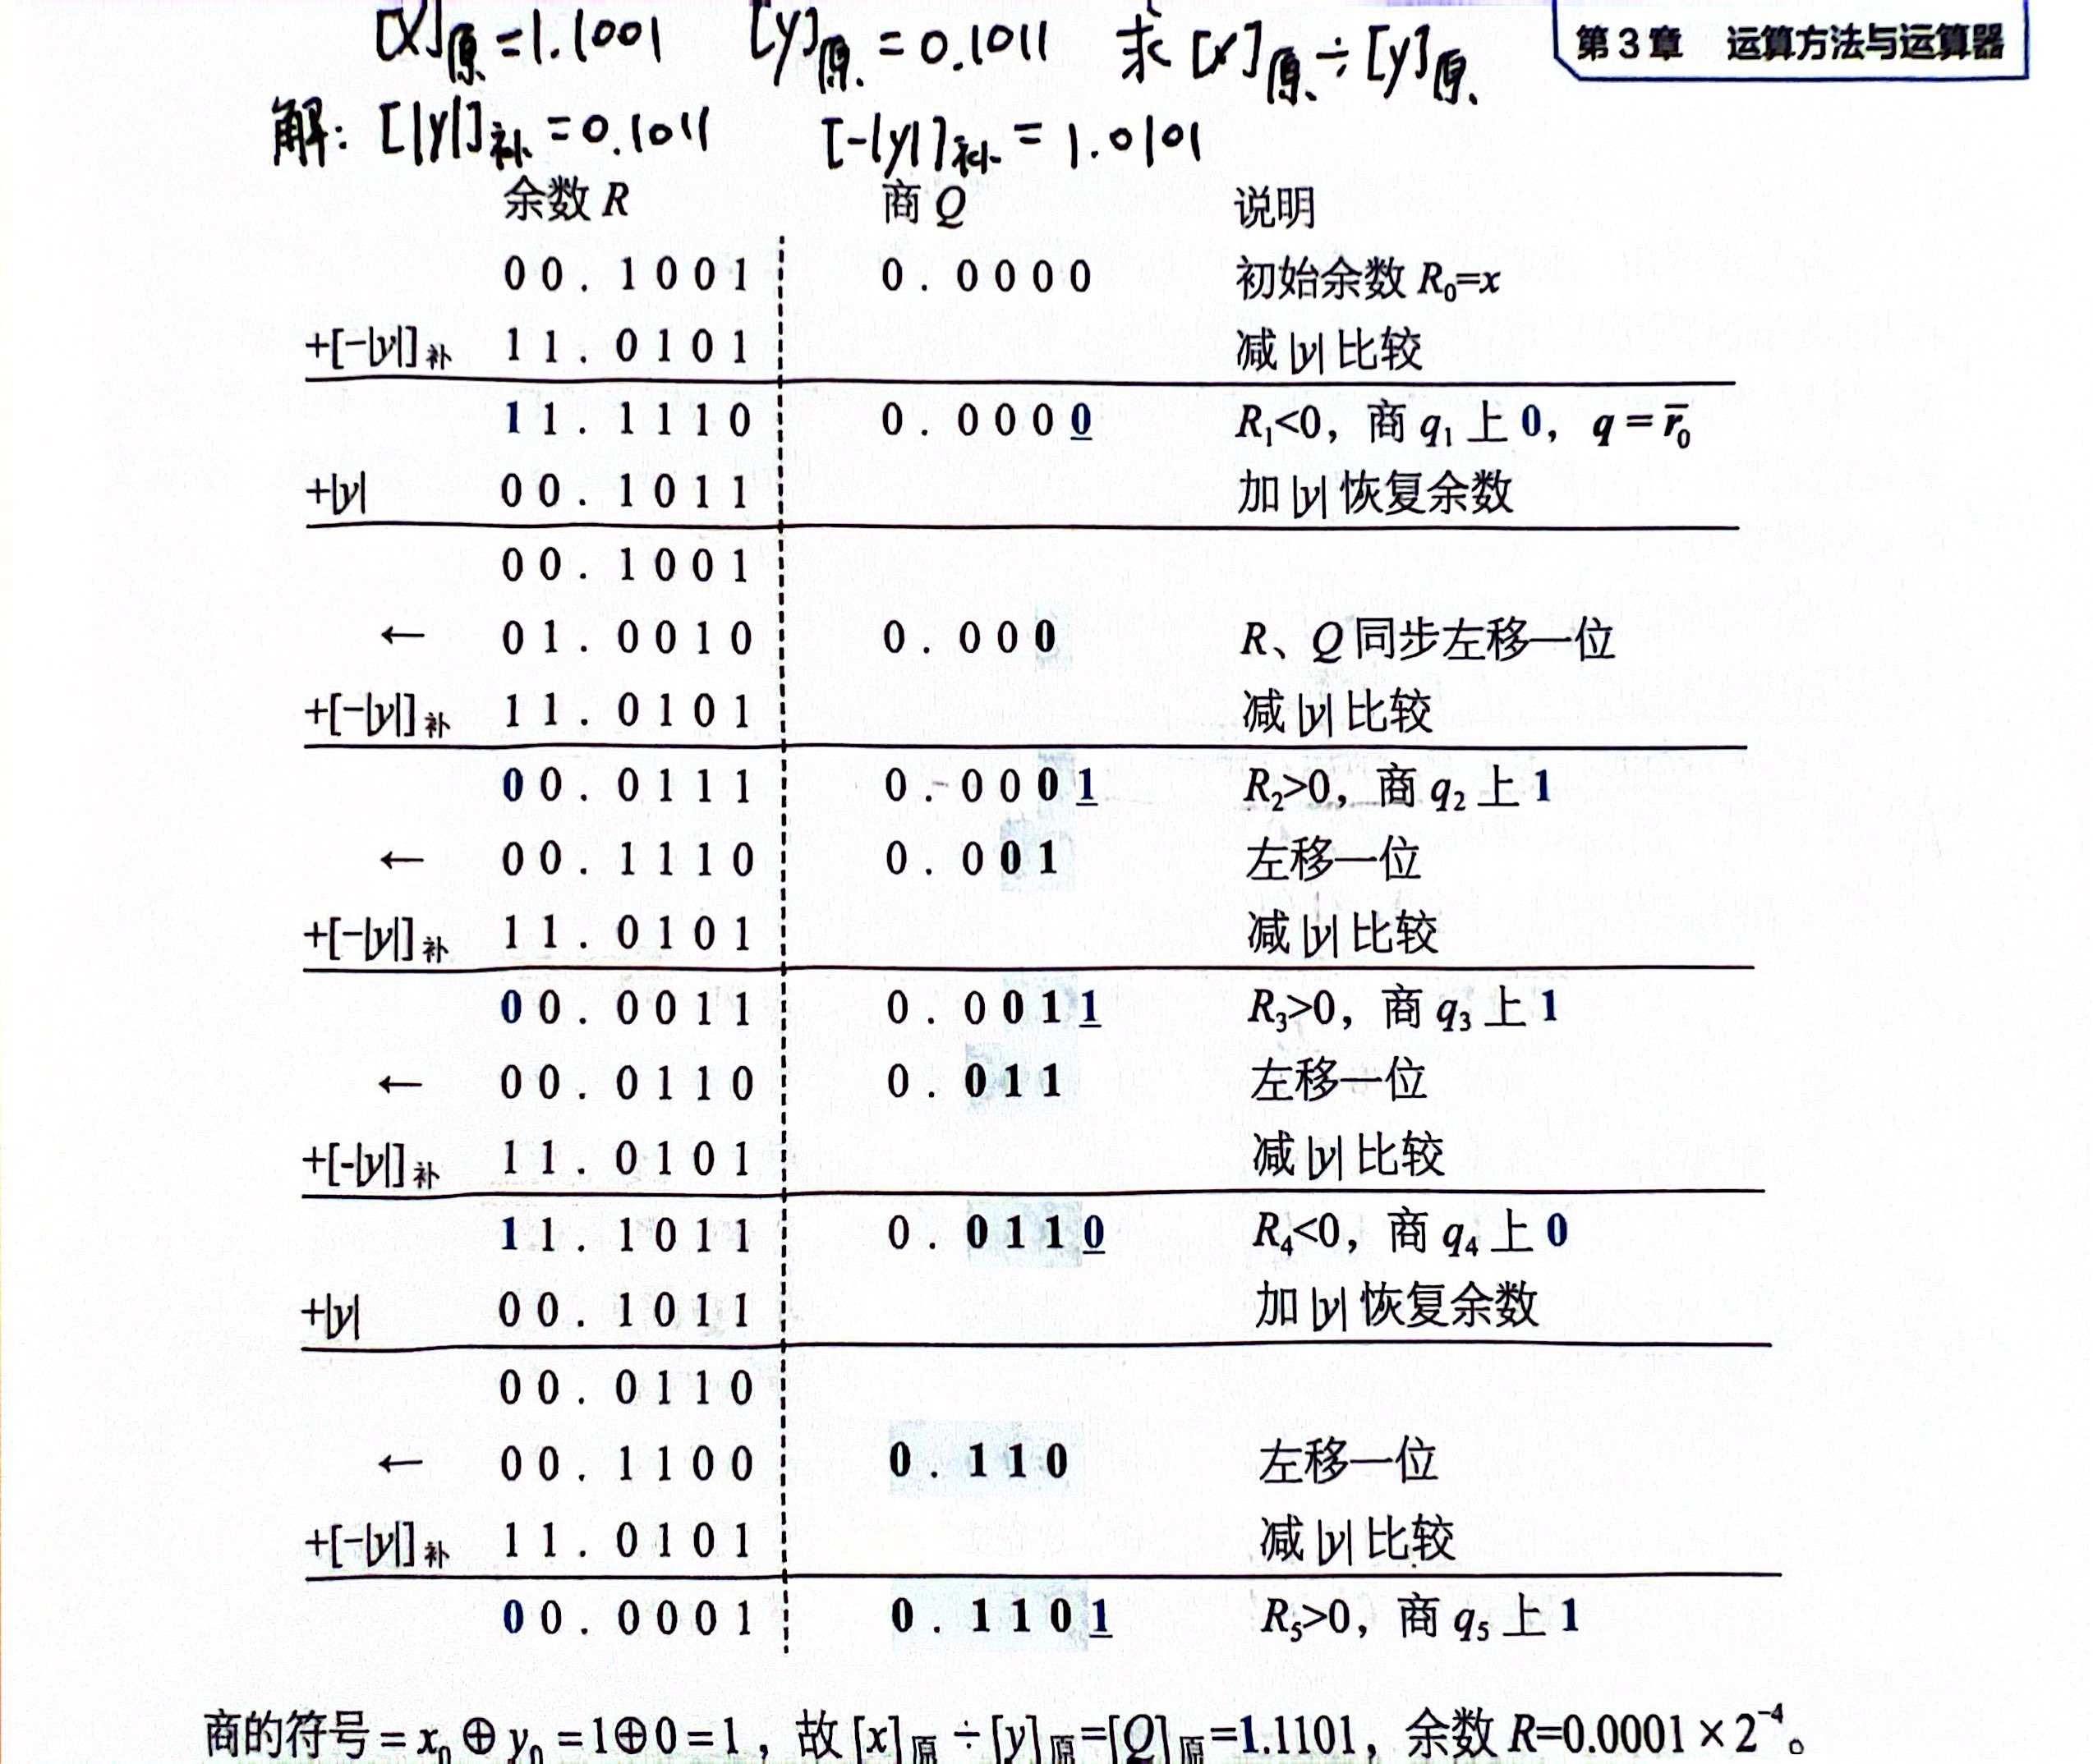 [x]原=1.1001 [y]原=0.1011 求[x]原÷[y]原
第3章 运算方法与运算器
解: [|y|]补=0.1011 [-|y|]补=1.0101
余数 R 商 Q 说明
00.1001 0.0000 初始余数 R₀=x
+[-|y|]补 11.0101 减|y|比较
11.1110 0.0000 R₁<0, 商 q₁ 上 0, q=r̅₀
+|y| 00.1011 加|y|恢复余数
00.1001
← 01.0010 0.000 R、Q 同步左移一位
+[-|y|]补 11.0101 减|y|比较
00.0111 0.0001 R₂>0, 商 q₂ 上 1
← 00.1110 0.001 左移一位
+[-|y|]补 11.0101 减|y|比较
00.0011 0.0011 R₃>0, 商 q₃ 上 1
← 00.0110 0.011 左移一位
+[-|y|]补 11.0101 减|y|比较
11.1011 0.0110 R₄<0, 商 q₄ 上 0
+|y| 00.1011 加|y|恢复余数
00.0110
← 00.1100 0.110 左移一位
+[-|y|]补 11.0101 减|y|比较
00.0001 0.1101 R₅>0, 商 q₅ 上 1
商的符号=x₀⊕y₀=1⊕0=1, 故[x]原÷[y]原=[Q]原=1.1101, 余数 R=0.0001×2⁻⁴。